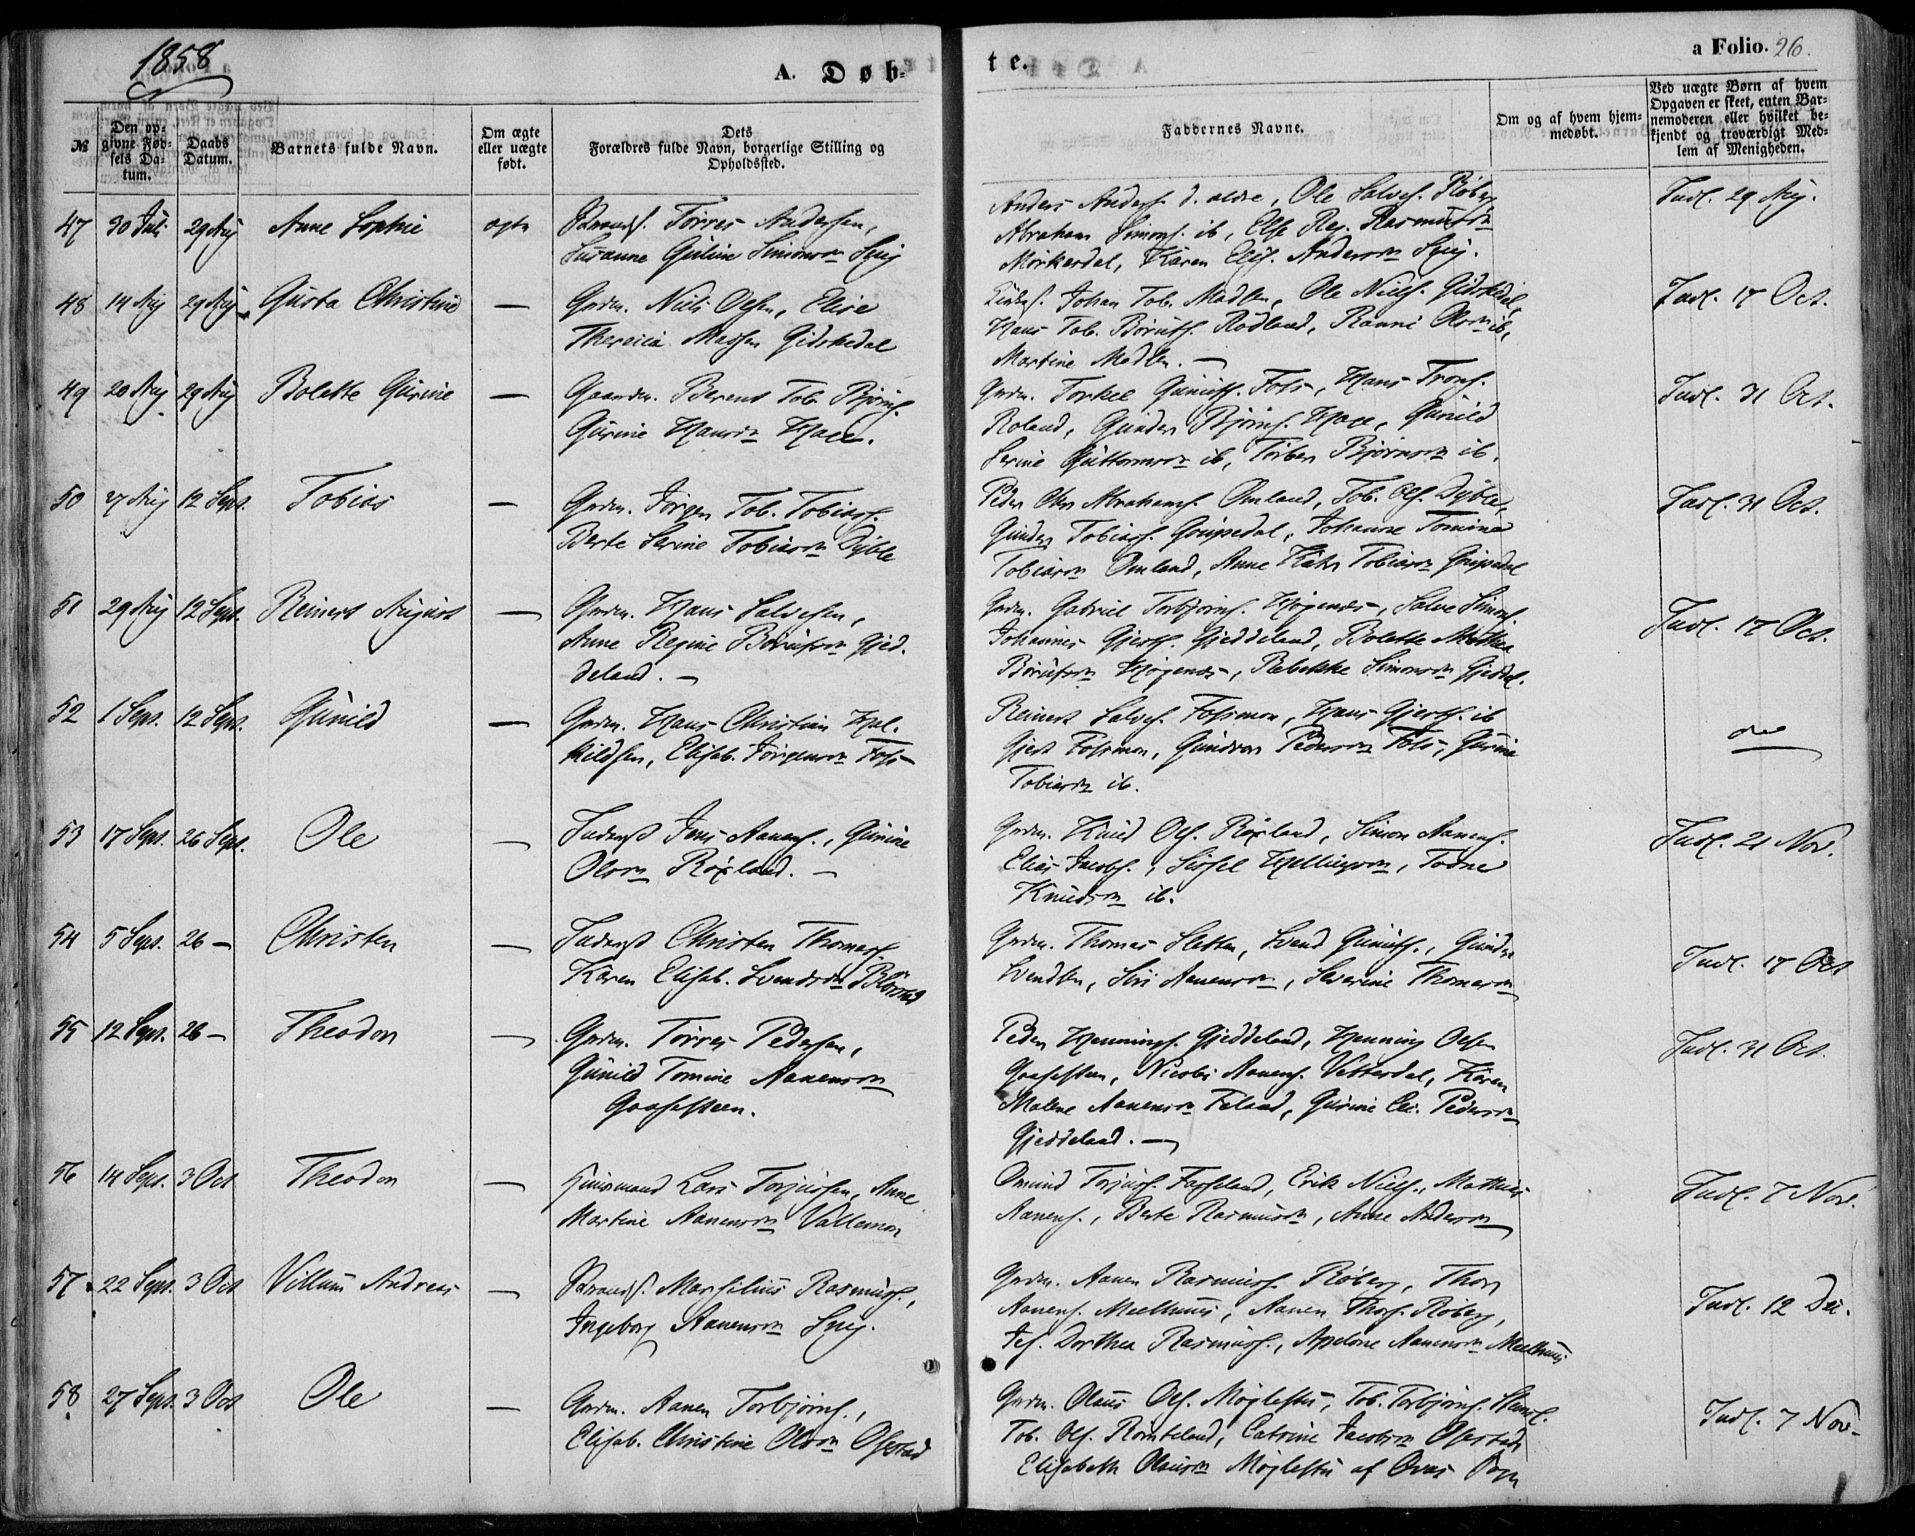 1858
A. Døb-
te.
a Folio. 26.
№
Den op-
givne Fød-
sels Da-
tum.
Daabs
Datum.
Barnets fulde Navn.
Om ægte
eller uægte
født.
Dets
Forældres fulde Navn, borgerlige Stilling og
Opholdssted.
Faddernes Navne.
Om og af hvem hjem-
medøbt.
Ved uægte Børn af hvem
Opgaven er skeet, enten Bar-
nemoderen eller hvilket be-
kjendt og troværdigt Med-
lem af Menigheden.
47 30 Juli 29 Aug Anne Sophie ægte
Torres Andersen,
Susanne Simonsn
Anders Anders. d. ældre, Ole Salves. Røberg
Abraham Simons. ib, Else Reg. Rasmusdn
Mørkerdal, Karen Elis. Andersn
Indl. 29 Aug.
48 14 Aug 29 Aug Gusta Christine —
Grdm. Niels Olsen, Elise
Theresia Gidskedal
Johan Tob. Ole Niels. Gidskedal,
Hans Tob. Rødland, Olsn ib,
Martine —
Indl. 17 Oct.
49 20 Aug 29 Aug Bolette Gurine —
Gaardm. Berent Tob. Bjørns.
Gurine Hansdn
Grdm. Torkel Foss, Hans Trons.
Roland, Gunder Bjørns. Gunild
Serine Guttormsn ib, Torber Bjørnsn ib.
Indl. 31 Oct.
50 27 Aug 12 Sept. Tobias —
Grdm. Jørgen Tob. Tobias.
Berte Serine Tobiasn Dyble
Peder Abrahams. Omland, Tob. Ols. Dyble,
Gunder Tobias. Gripsdal, Johanne Tomine
Tobiasn Omland, Anne Tobiasn Gripsdal
Indl. 31 Oct.
51 29 Aug 12 Sept. Reinert August —
Grdm. Hans Salvesen,
Anne Regine Gjed-
deland. —
Grdm. Gabriel Torbjørns. Salve Simons.
Johannes Gjerts. Gjeddeland, Bolette Mathea
Rebekke Simonsn Gjeddel.
Indl. 17 Oct.
52 1 Sept. 12 Sept. Gunild —
Grdm. Hans Christian Hal-
kildsen, Elisab. Jørgensn Foss
Reinert Salves. Fossmon, Hans Gjerts. ib
Gjert Fossmon, Pedersn Foss, Gurine
Tobiasdn ib.
53 17 Sept. 26 Sept. Ole —
Inderst Jens Aanens., Gunine
Olsn Røxland. —
Grdm. Knud Ols. Røxland, Simon Aanens.
Elias Jacobs., Sissel Todne
Knudsn ib.
Indl. 21 Nov.
54 5 Sept. 26 — Christen —
Inderst Christen Thomas.
Karen Elisab. Svendsdn
Grdm. Thomas Sletten, Svend Gunder
Svendsn, Siri Aanensn, Severine Thomasn
Indl. 17 Oct
55 12 Sept. 26 — Theodor —
Grdm. Torres Pedersen,
Gunild Tomine Aanensn
Gaaseflaen.
Peder Hennings. Gjeddeland, Henning Olsen
Nicolai Aanens. Vatterdal, Karen
Malene Aanensn Faland, Gurine Pedersn
Gjeddeland. —
Indl. 31 Oct.
56 14 Sept. 3 Oct Theodor —
Huusmand Lars Torjussen, Anne
Martine Aanensn Vallemon
Omund Torjus. Erik Niels., Mathias
Aanens., Berte Rasmusn, Anne Andersn
Indl. 7 Nov.
57 22 Sept. 3 Oct Villum Andreas —
Marselius Rasmus.,
Ingeborg Aanensn
Grdm. Aanen Rasmus. Røberg, Thor
Aanens. Meelhuus, Aanen Thors. Røberg,
Dorthea Rasmus., Apelone Aanensn Meelhuus
Indl. 12 Dec.
58 27 Sept. 3 Oct Ole —
Grdm. Aanen Torbjørns.,
Elisab. Christine Olsn Ofstad
Grdm. Olaus Ols. Møglestu, Tob. Torbjørns.
Tob. Ols. Catrine Jacobsn Ofstad
Elisabeth Olausn Møglestu af Sogn
Indl. 7 Nov.